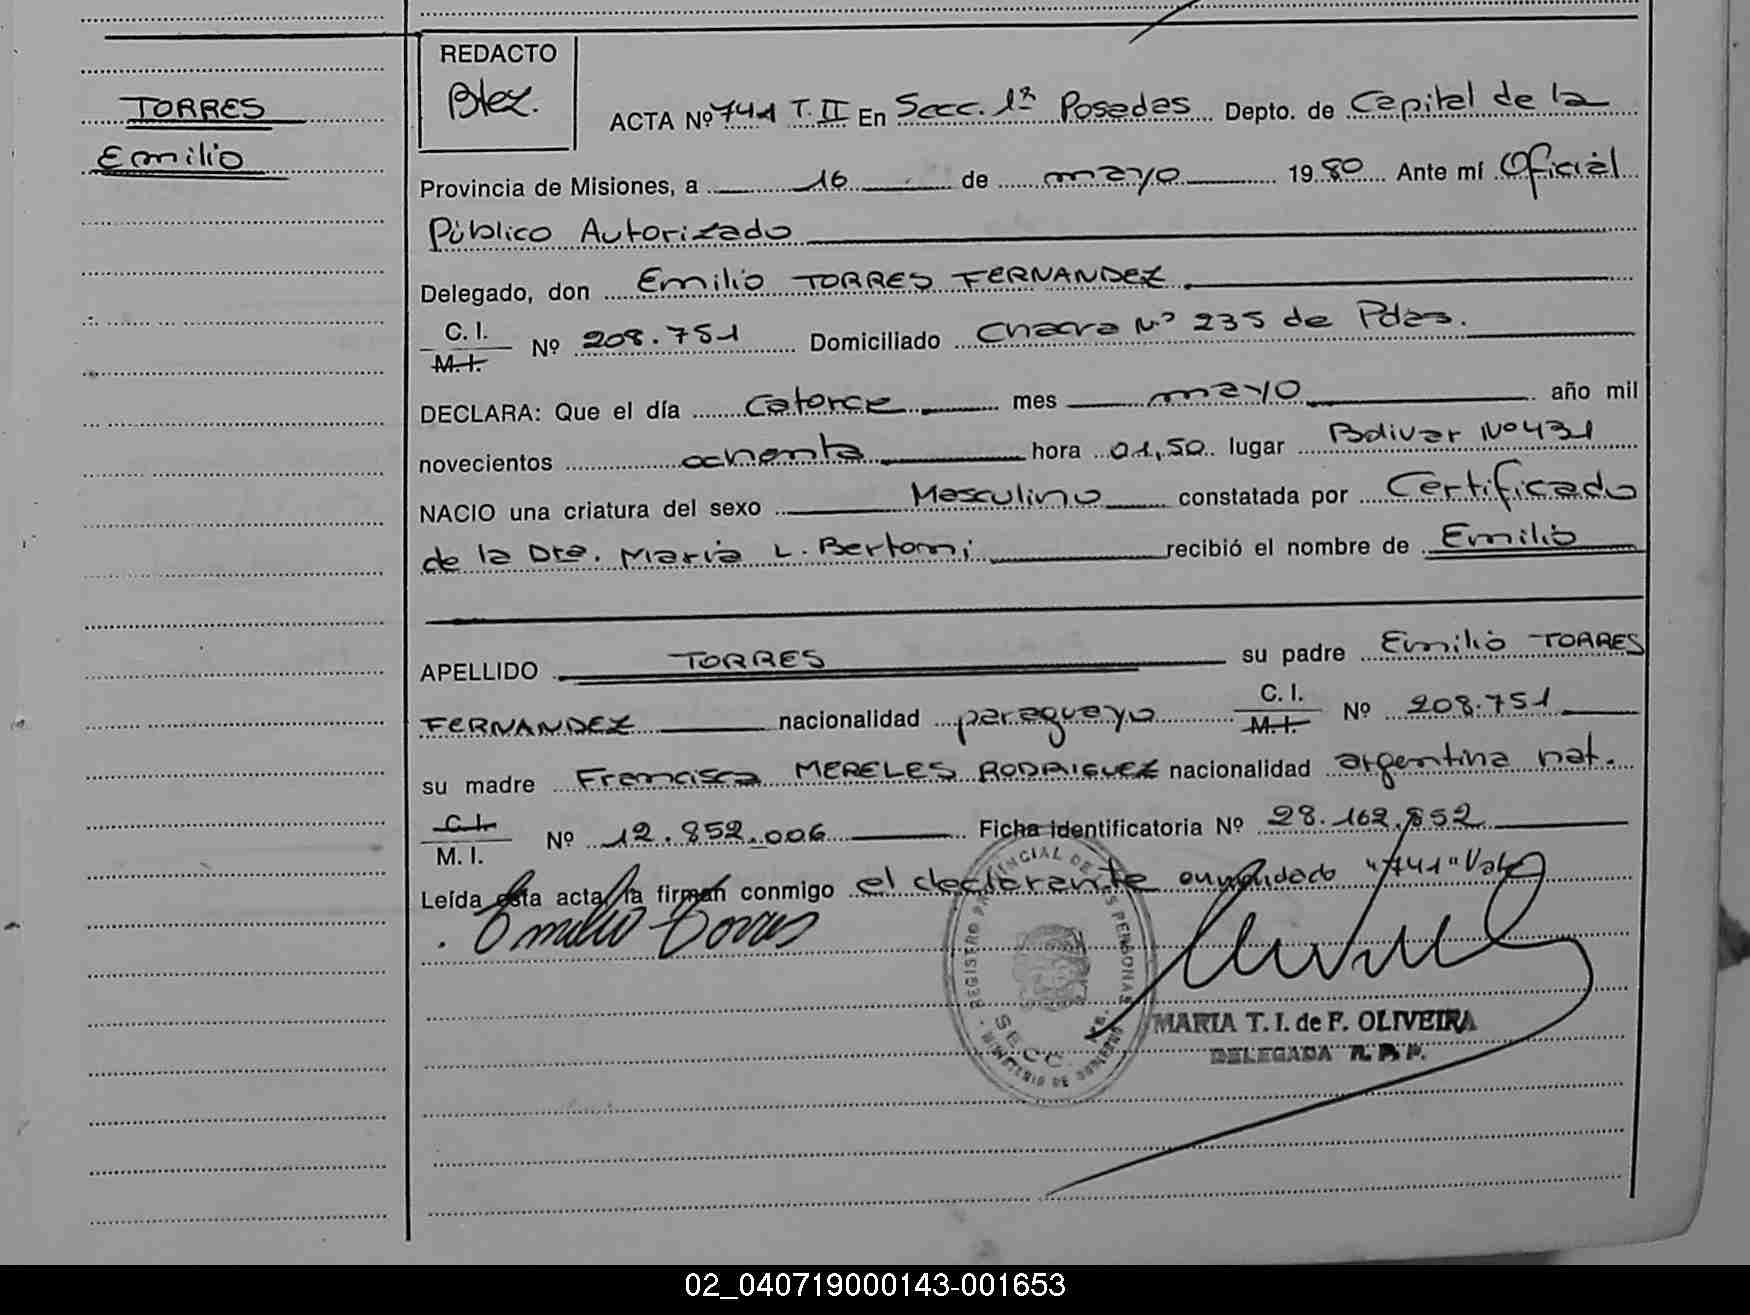 REDACTO
Blez.
TORRES
Emilio
ACTA Nº 741 T. II En Secc. 1ª Posadas Depto. de Capital de la
Provincia de Misiones, a 16 de mayo 1980 Ante mí Oficial
Público Autorizado
Delegado, don Emilio TORRES FERNANDEZ
C. I.
M. I. Nº 208.751 Domiciliado Chacra Nº 235 de Pdas.
DECLARA: Que el día Catorce mes mayo año mil
novecientos ochenta hora 01,50 lugar Bolivar Nº 431
NACIO una criatura del sexo Masculino constatada por Certificado
de la Dra. Maria L. Bertoni recibió el nombre de Emilio
APELLIDO TORRES su padre Emilio TORRES
FERNANDEZ nacionalidad paraguayo C. I. M. I. Nº 208.751
su madre Francisca MERELES RODRIGUEZ nacionalidad argentina nat.
C. I.
M. I. Nº 12.852.006 Ficha identificatoria Nº 28.162.852
Leída esta acta, la firman conmigo el declarante enmendado "741" Vale
Emilio Torres
REGISTRO PROVINCIAL DE LAS PERSONAS
SECC.
MINISTERIO DE GOBIERNO
MARIA T. I. de F. OLIVEIRA
DELEGADA R. P. P.
02_040719000143-001653